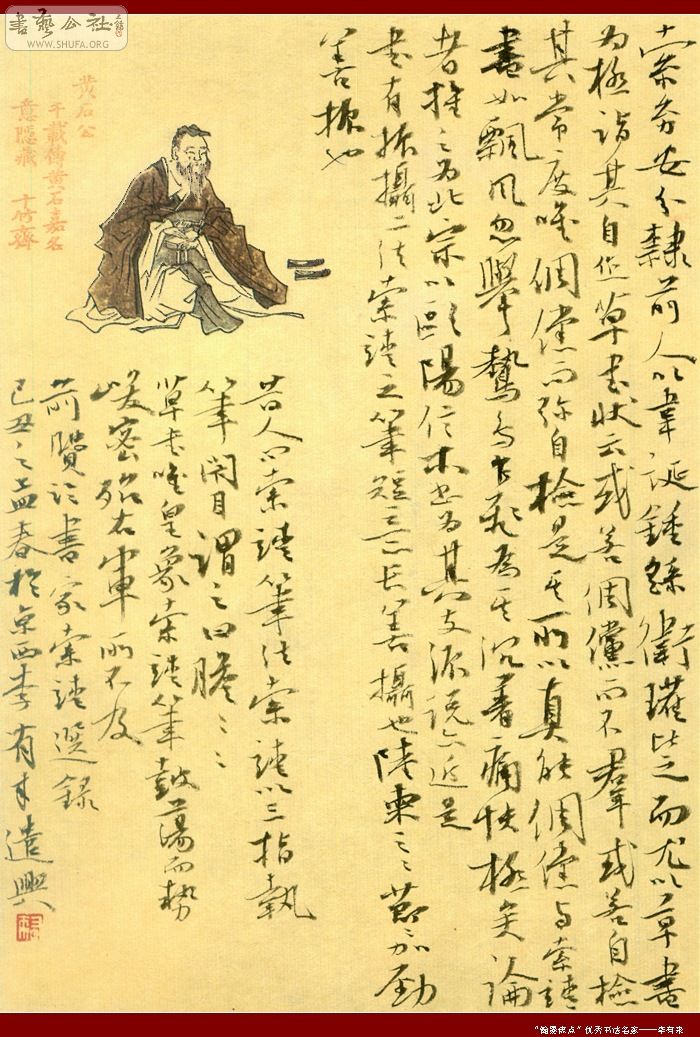 書藝公社
WWW.SHUFA.ORG
索幼安分隸前人以韋誕鍾繇衛瓘比之而尤以草書
為極詣其自作草書狀云或若倜儻而不羣或若自檢
其常度唯倜儻而弥自檢是其所以真能倜儻与索靖
書如飄風忽舉鷙鳥乍飛為其沉著痛快極矣論
者推之為北宗以歐陽信本書為其支派說亦近是
書有振攝二法索靖之筆短意長善攝也陸柬之之節節加勁
善振也
黄石公
千載傳黄石嘉名
意隱藏 十竹齋
昔人索靖筆法索靖以三指執
筆閉目謂之曰膽
草書唯皇象索靖筆鼓蕩而勢
峻密殆右軍所不及
前賢論書家索靖選錄
己丑之孟春於京西李有来遣興
“翰墨焦点”优秀书法名家——李有来